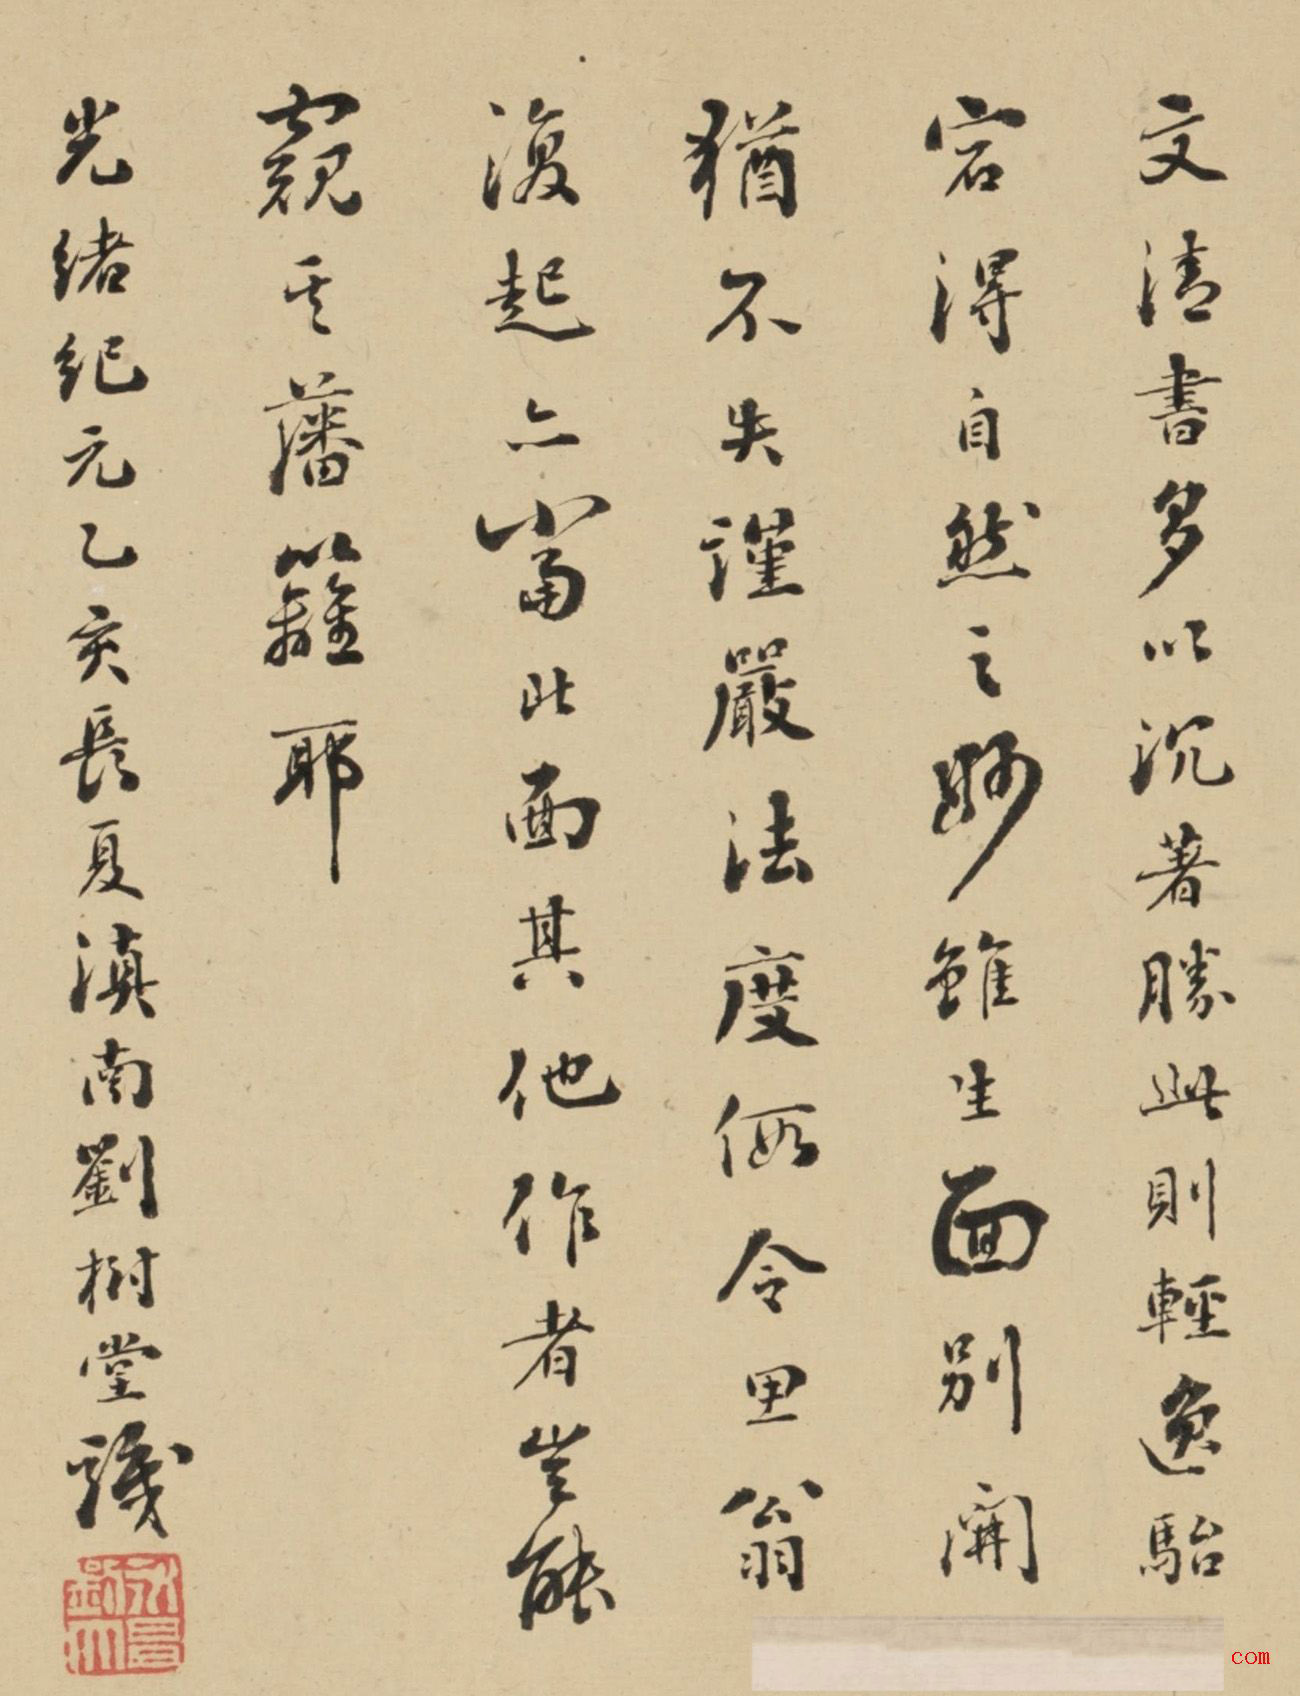 文清書多以沉著勝此則輕逸駘
宕得自然之妙雖生面別開
猶不失謹嚴法度假令思翁
復起亦當北面其他作者豈能
窺其藩籬耶
光緒紀元乙亥長夏滇南劉樹堂識
com